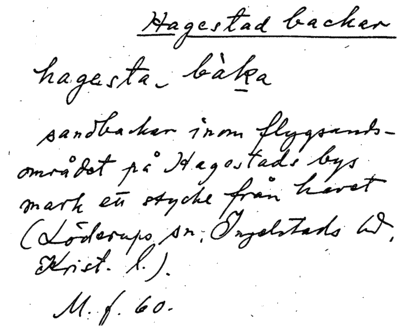 Hagestad backar
hagesta bàka
sandbackar inom flygsands-
området på Hagestads bys
mark ett stycke från havet
(Löderups sn, Ingelstads hd,
Krist. l.).
M. f. 60.